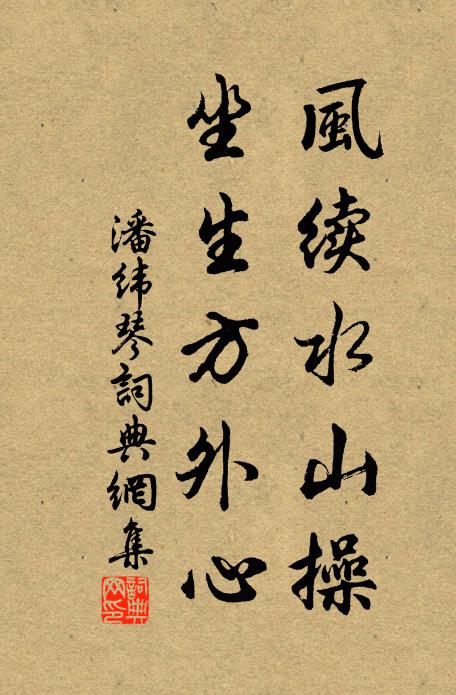 風续水山操
坐生方外心
潘纬琴詞典網集
詞典网印